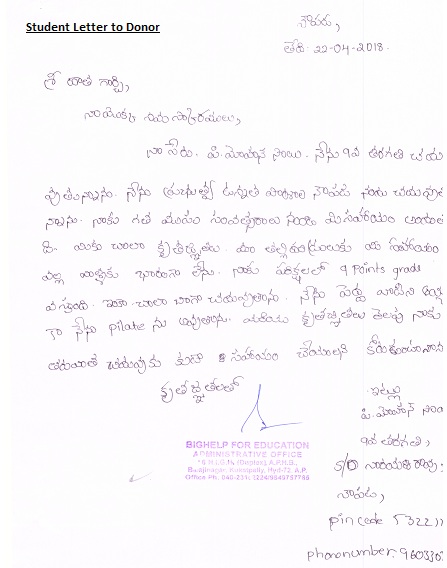 Student Letter to Donor
నౌపడు,
తేది: 22-04-2018.
శ్రీ దాత గార్కి,
నా యొక్క నమస్కారములు,
నా పేరు. పి.మోహన సాయి. నేను 9వ తరగతి చదు
వుతున్నాను. నేను ప్రభుత్వ ఉన్నత పాఠశాల నౌపడ నందు చదువుతు
న్నాను. నాకు గత మూడు సంవత్సరాలు నుండి మీ సహాయం
ది. మీకు చాలా కృతజ్ఞతలు. మా తల్లిదండ్రులకు ఈ సహాయం
వల్ల భారంగా లేను. నాకు పరీక్షలలో 9 points grade
వస్తుంది. ఇంకా చాలా బాగా చదువుతాను. నేను పెద్ద
గా నేను pilate ను అవుతాను. మరియు కృతజ్ఞతలు తెలుపు నాకు
తరువాత చదువుకు కూడా సహాయం చేయాలని కోరుకుంటున్నాను
కృతజ్ఞతలతో
ఇట్లు
పి.మోహన్ సాయి
9వ తరగతి,
S/O నారాయణ రావు,
నౌపడ,
pin code 53221
phone number: 960330
BIGHELP FOR EDUCATION
ADMINISTRATIVE OFFICE
Balajinagar, Kukatpally, Hyd-72, A.P.
Office Ph: 040-231